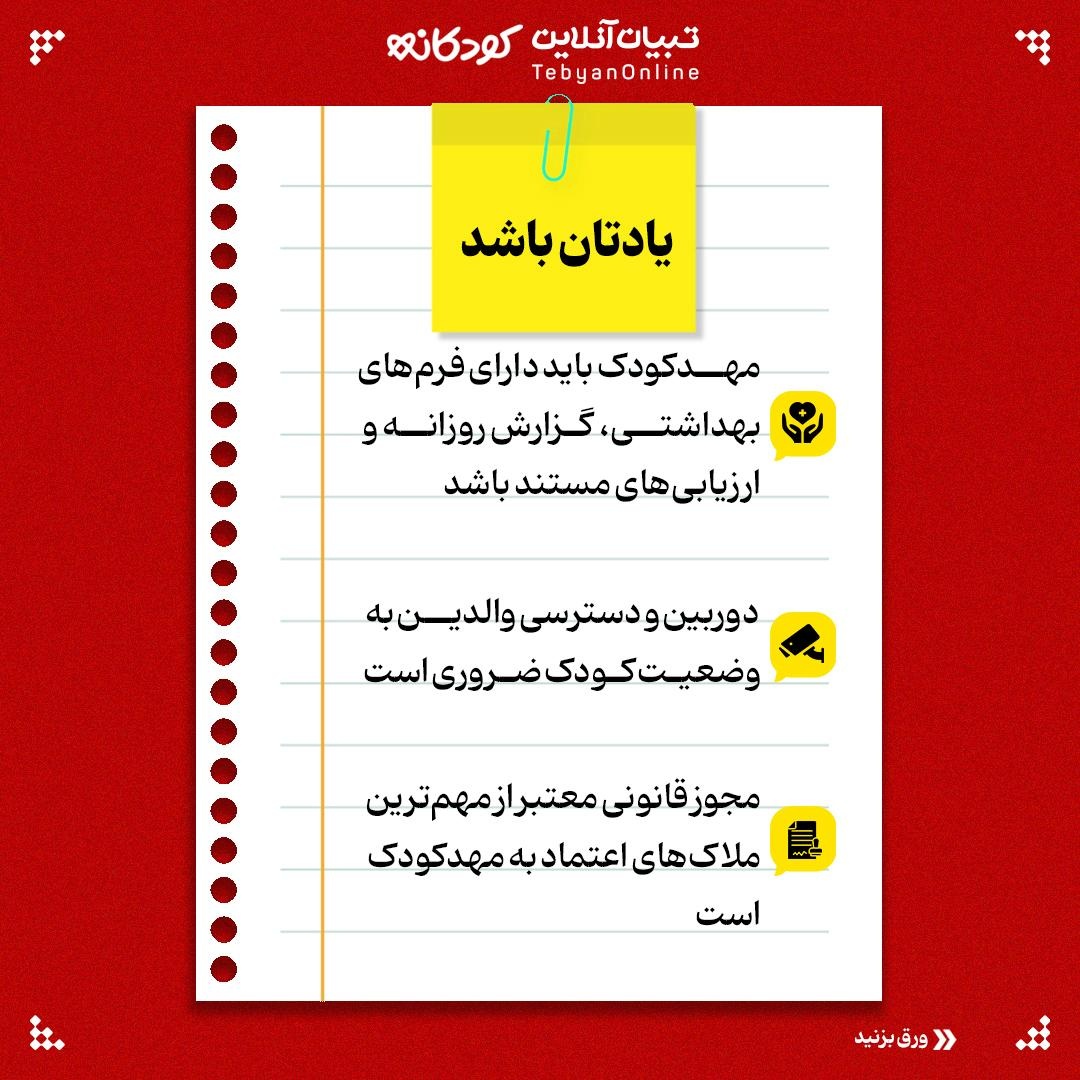 تبیان‌آنلاین کودکانه
TebyanOnline
یادتان باشد
مهدکودک باید دارای فرم‌های
بهداشتی، گزارش روزانه و
ارزیابی‌های مستند باشد
دوربین و دسترسی والدین به
وضعیت کودک ضروری است
مجوز قانونی معتبر از مهم‌ترین
ملاک‌های اعتماد به مهدکودک
است
ورق بزنید